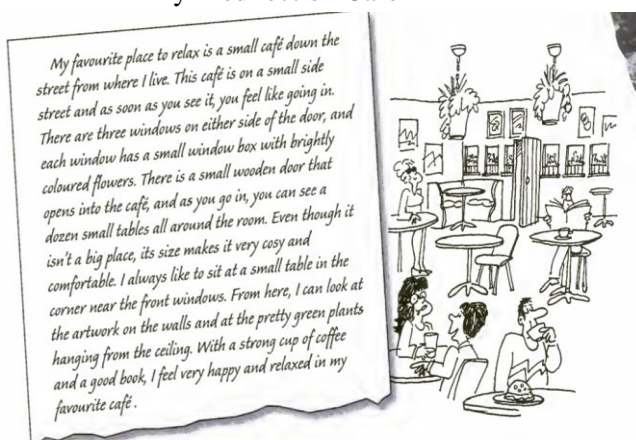 My favourite place to relax is a small café down the
street from where I live. This café is on a small side
street and as soon as you see it, you feel like going in.
There are three windows on either side of the door, and
each window has a small window box with brightly
coloured flowers. There is a small wooden door that
opens into the café, and as you go in, you can see a
dozen small tables all around the room. Even though it
isn't a big place, its size makes it very cosy and
comfortable. I always like to sit at a small table in the
corner near the front windows. From here, I can look at
the artwork on the walls and at the pretty green plants
hanging from the ceiling. With a strong cup of coffee
and a good book, I feel very happy and relaxed in my
favourite café .